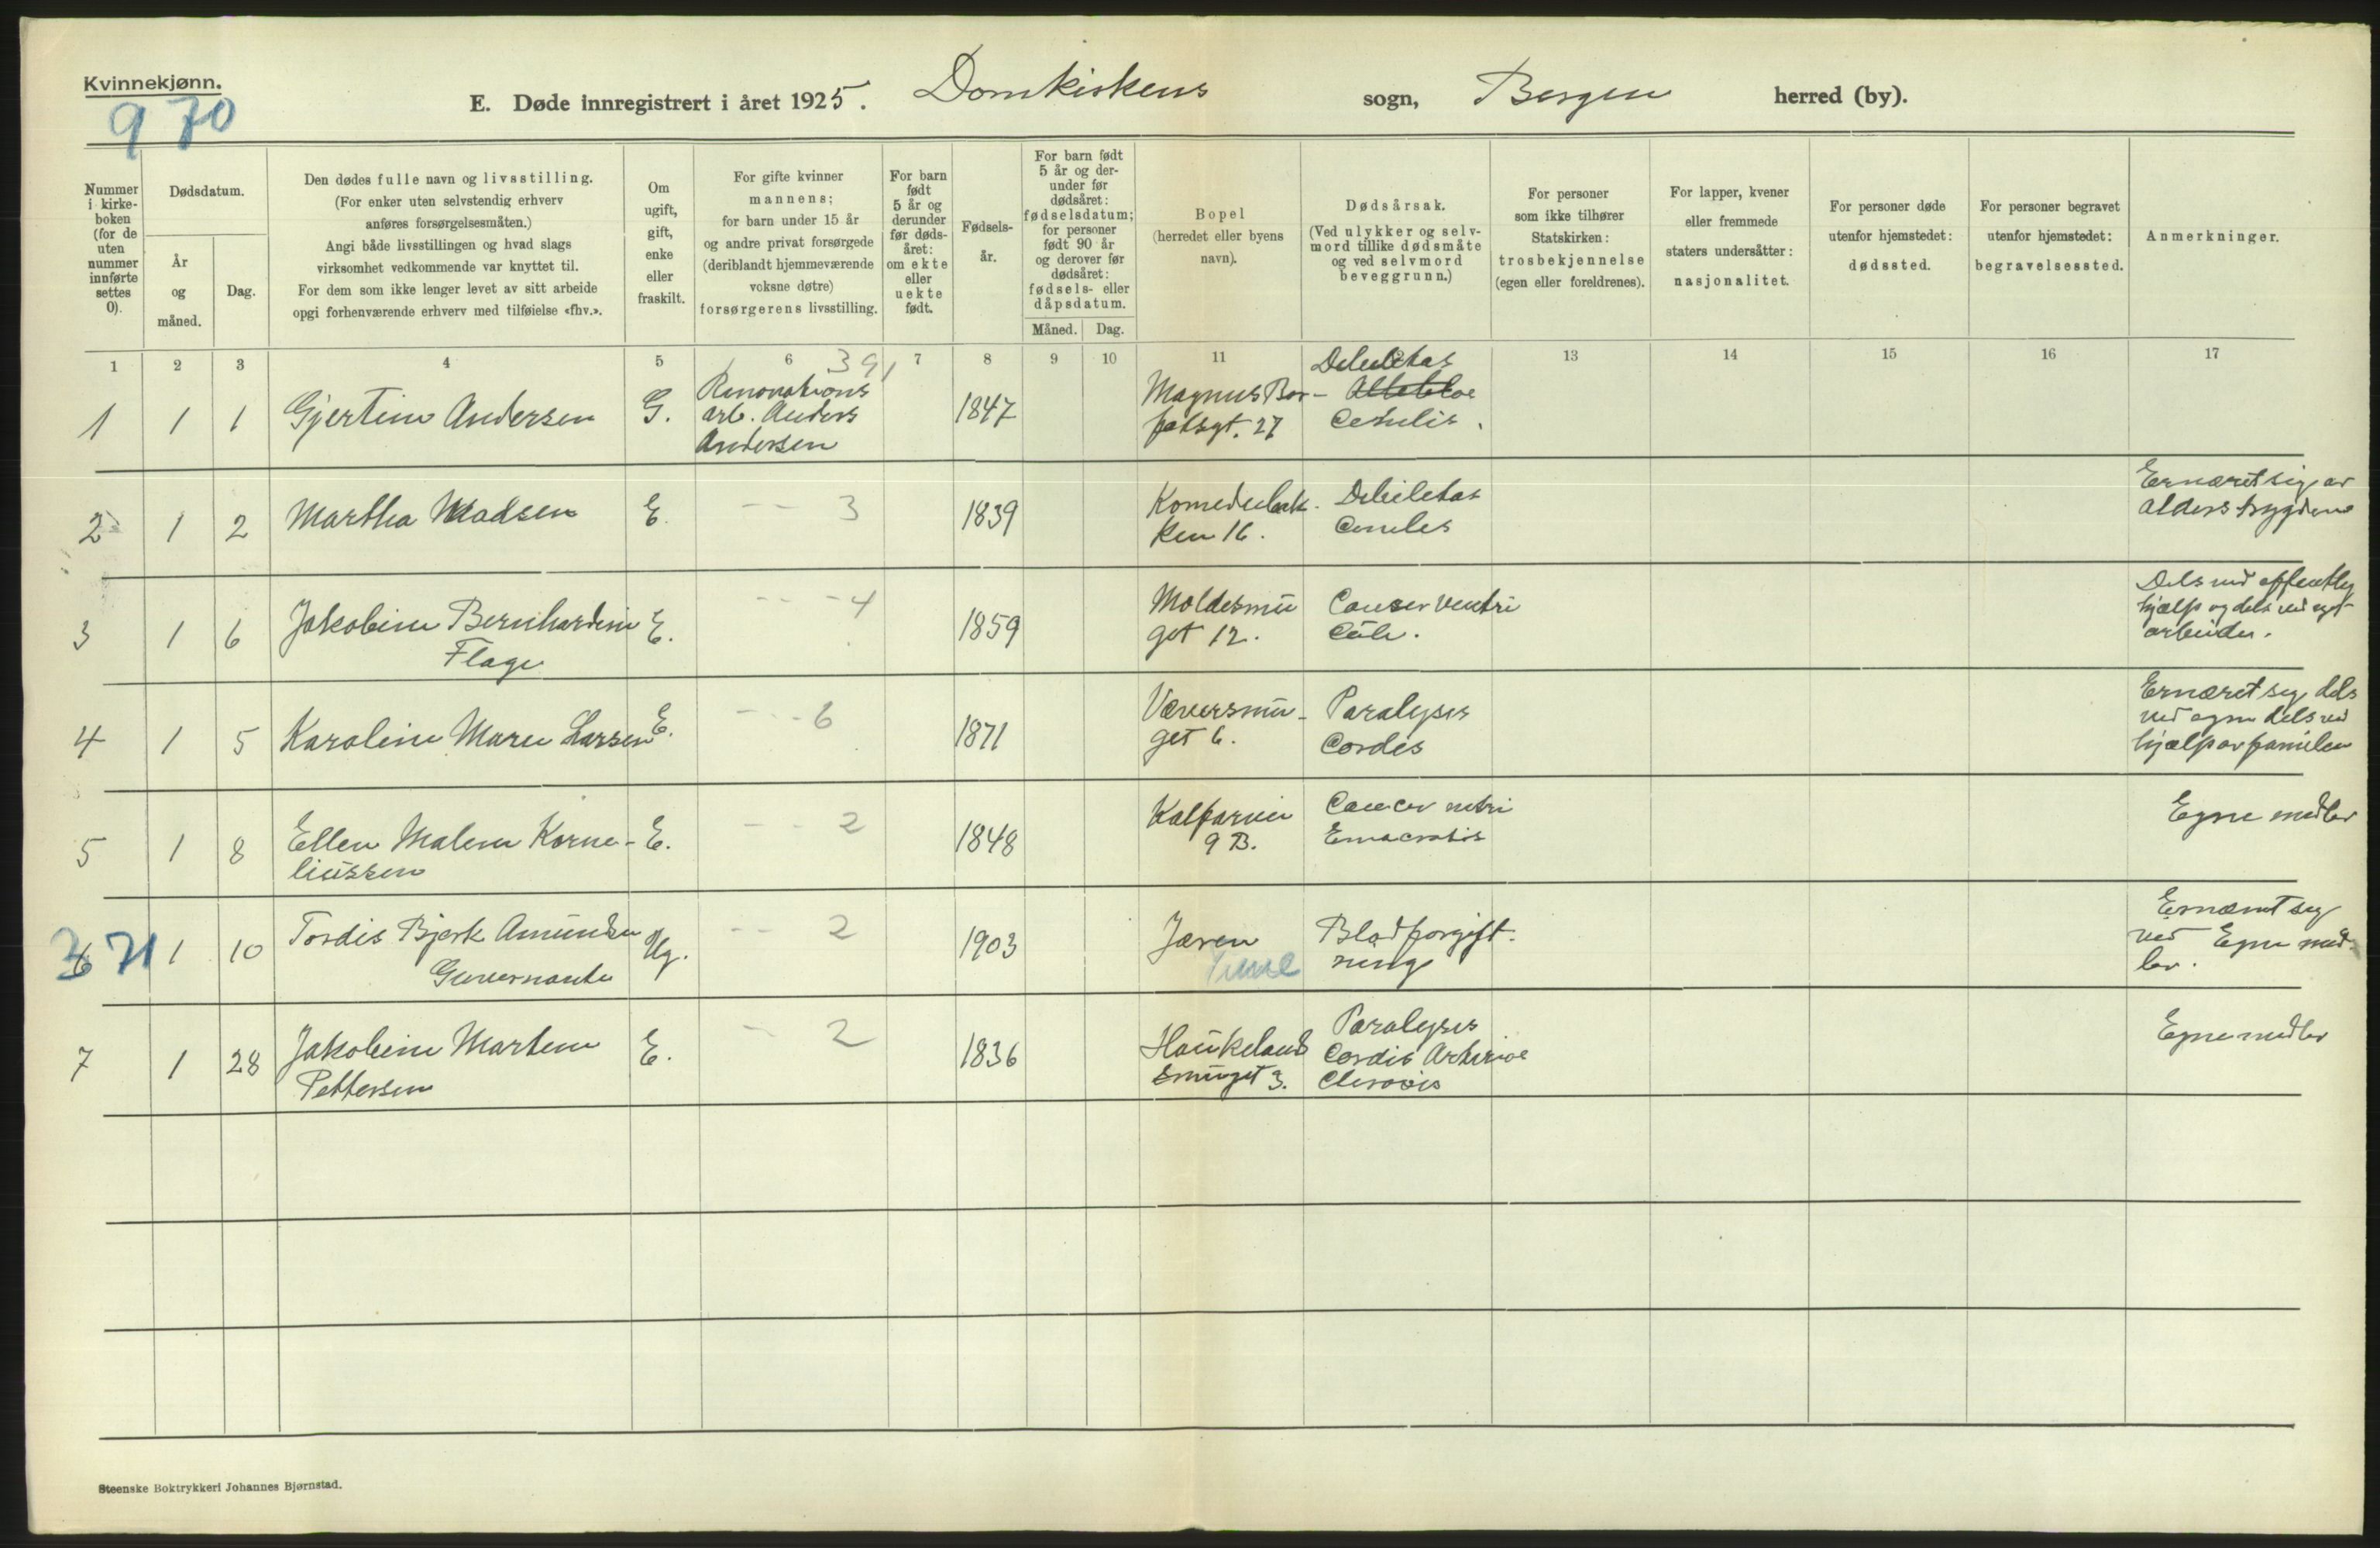 Kvinnekjønn.
9 70
E. Døde innregistrert i året 1925. Domkirkens sogn, Bergen herred (by).
Nummer i kirkeboken (for de uten nummer innførte settes 0).
Dødsdatum.
År og måned.
Dag.
Den dødes fulle navn og livsstilling.
(For enker uten selvstendig erhverv
anføres forsørgelsesmåten.)
Angi både livsstillingen og hvad slags
virksomhet vedkommende var knyttet til.
For dem som ikke lenger levet av sitt arbeide
opgi forhenværende erhverv med tilføielse «fhv.».
Om ugift, gift, enke eller fraskilt.
For gifte kvinner
mannens;
for barn under 15 år
og andre privat forsørgede
(deriblandt hjemmeværende
voksne døtre)
forsørgerens livsstilling.
For barn født 5 år og derunder før dødsåret: om ekte eller uekte født.
Fødselsår.
For barn født 5 år og derunder før dødsåret: fødselsdatum; for personer født 90 år og derover før dødsåret: fødsels- eller dåpsdatum.
Måned. Dag.
Bopel
(herredet eller byens
navn).
Dødsårsak.
(Ved ulykker og selvmord tillike dødsmåte og ved selvmord beveggrunn.)
For personer
som ikke tilhører
Statskirken:
trosbekjennelse
(egen eller foreldrenes).
For lapper, kvener
eller fremmede
staters undersåtter:
nasjonalitet.
For personer døde
utenfor hjemstedet:
dødssted.
For personer begravet
utenfor hjemstedet:
begravelsessted.
Anmerkninger.
1 2 3 4 5 6 7 8 9 10 11 12 13 14 15 16 17
391
1 1 1 Gjertine Andersen G. Renovations
arb. Anders
Andersen
1847 Magnus Bar-
fotsgt. 27
Debilitas
Cenilis.
2 1 2 Martha Madsen E. -- 3 1839 Komediebak-
ken 16.
Debilitas
Ceniles
Ernæret sig av
alderstrygden
3 1 6 Jakobine Bernhardine
Flage
E. --- 4 1859 Moldesmu
get 12.
Cancer ventri
Culi.
Dels ved offentlig
hjælp og dels ved eget
arbeide.
4 1 5 Karoline Marie Larsen E. --- 6 1871 Væversmu-
get 6.
Paralysis
Cordis
Ernæret sig dels
ved egne dels ved
hjælp av familien
5 1 8 Ellen Malene Korne-
liussen
E. -- 2 1848 Kalfarvei
9 B.
Cancer
Emacratis
Egne midler
6 71 1 10 Tordis Bjerk Amundsen
Guvernante
Ug. -- 2 1903 Jæren
Time
Blodforgift-
ning
Ernæret sig
ved Egne mid-
ler.
7 1 28 Jakobine Martine
Pettersen
E. - 2 1836 Haukeland
smuget 3.
Paralysis
Cordis Arteriae
Clerosis
Egne midler
Steenske Boktrykkeri Johannes Bjørnstad.